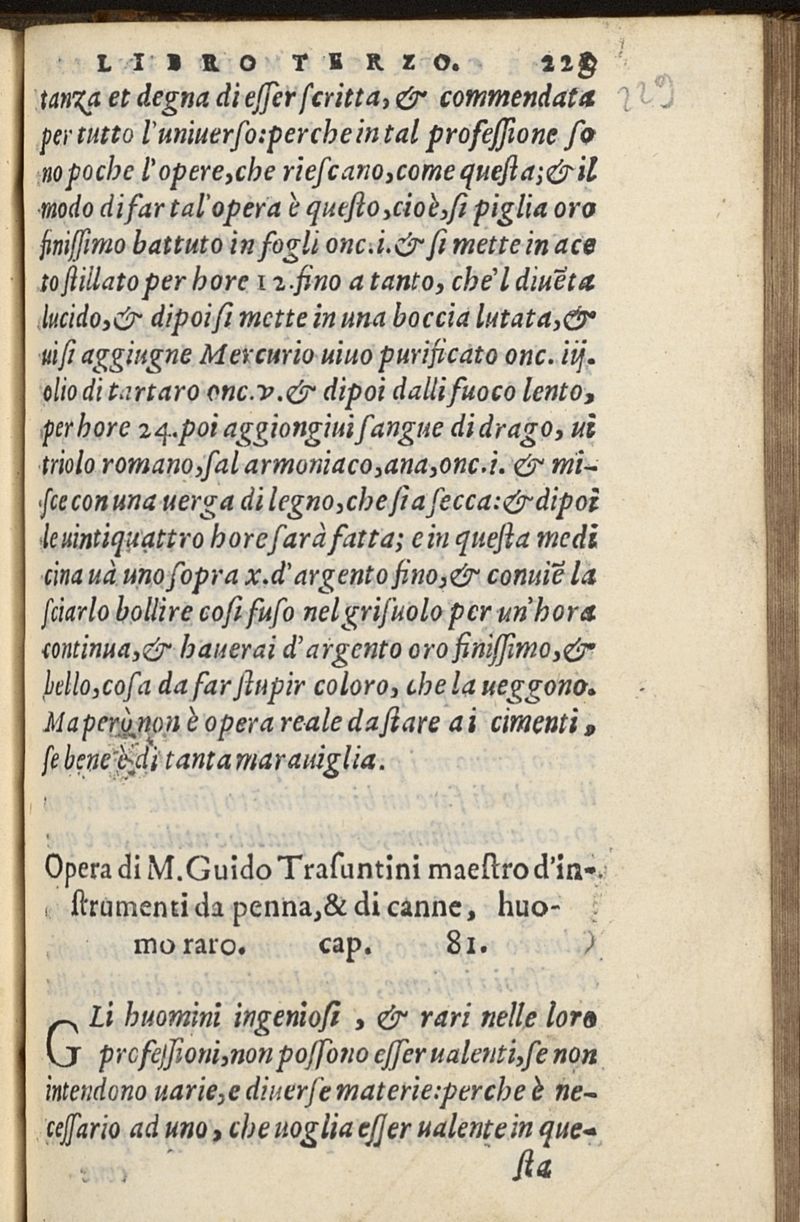 LIBRO TERZO. 228
229
tanza et degna di esser scritta, & commendata
per tutto l'uniuerso: perche in tal professione so
no poche l'opere, che riescano, come questa; & il
modo di far tal'opera è questo, cioè, si piglia oro
finissimo battuto in fogli onc. i. & si mette in ace
to stillato per hore 12. fino a tanto, che'l diuēta
lucido, & dipoi si mette in una boccia lutata, &
ui si aggiugne Mercurio uiuo purificato onc. iij.
olio di tartaro onc. v. & dipoi dalli fuoco lento,
per hore 24. poi aggiongiui sangue di drago, ui
triolo romano, sal armoniaco, ana, onc. i. & mi-
sce con una uerga di legno, che sia secca: & dipoi
le uintiquattro hore sarà fatta; e in questa medi
cina uà uno sopra x. d'argento fino, & conuiē la
sciarlo bollire cosi fuso nel grisuolo per un'hora
continua, & hauerai d'argento oro finissimo, &
bello, cosa da far stupir coloro, che la ueggono.
Ma però non è opera reale da stare ai cimenti,
se bene è di tanta marauiglia.
Opera di M. Guido Trasuntini maestro d'in-
strumenti da penna, & di canne, huo-
mo raro. cap. 81.
GLi huomini ingeniosi, & rari nelle loro
professioni, non possono esser ualenti, se non
intendono uarie, e diuerse materie: perche è ne-
cessario ad uno, che uoglia esser ualente in que-
sta